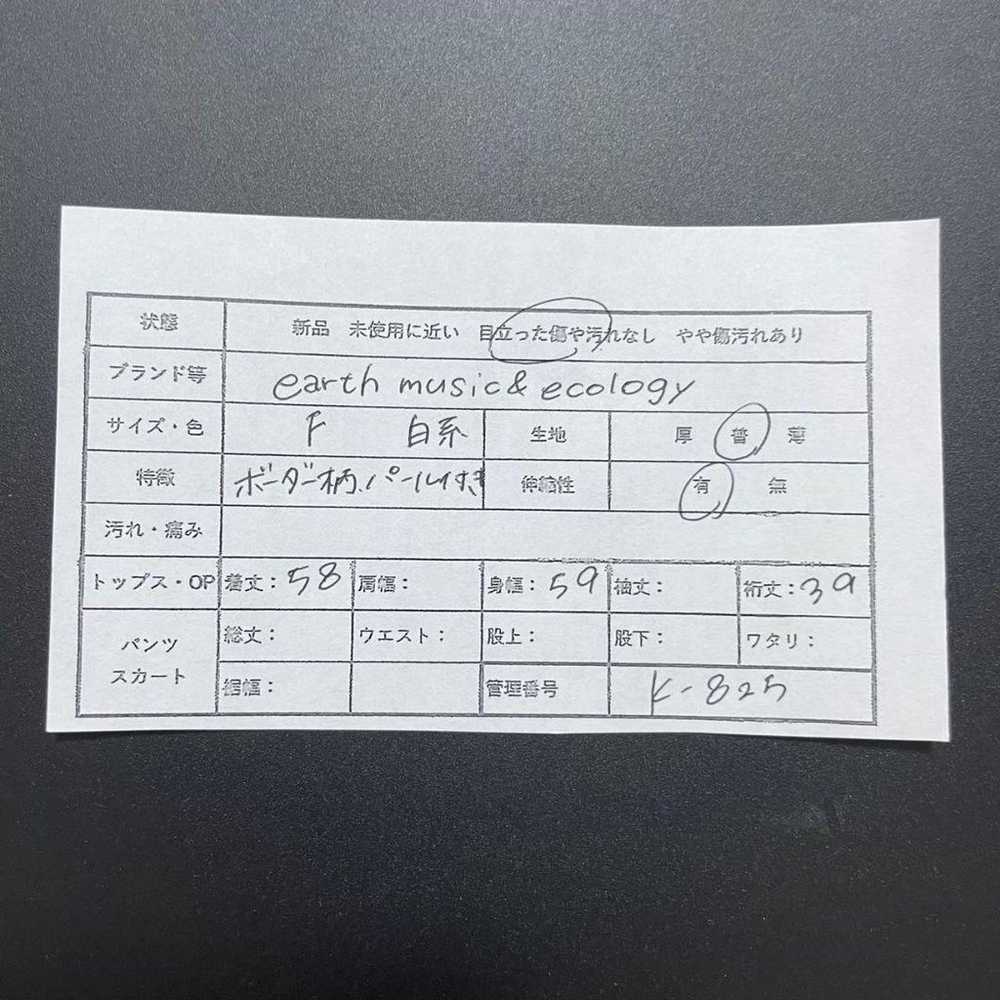 状態 新品 未使用に近い 目立った傷や汚れなし やや傷汚れあり
ブランド等 earth music & ecology
サイズ・色 F 白系 生地 厚 普 薄
特徴 ボーダー柄、パール付き 伸縮性 有 無
汚れ・痛み
トップス・OP 着丈：58 肩幅： 身幅：59 袖丈： 裄丈：39
パンツ スカート 総丈： ウエスト： 股上： 股下： ワタリ：
裾幅： 管理番号 K-825